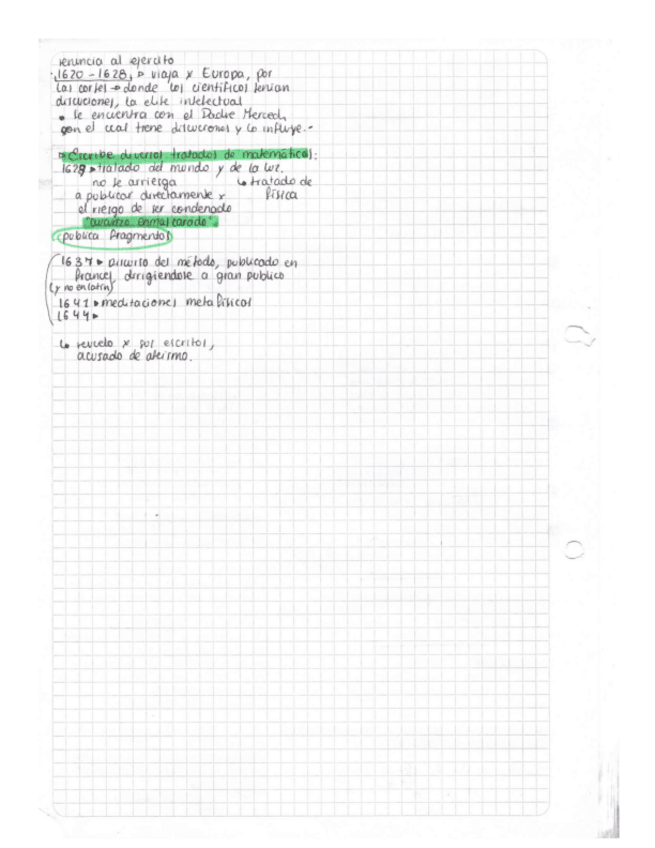 renuncia al ejercito
1620 - 1628, ▹ viaja x Europa, por
las cortes → donde los cientificos tenian
discuciones, la elite intelectual
• Se encuentra con el Padre Merced,
con el cual tiene discuciones y lo influye.-
▹ Escribe diversos tratados de matemáticas:
1628 ▸ tratado del mundo y de la luz.
no se arriesga ↳ tratado de
a publicar directamente x física
el riesgo de ser condenado
"avanzo enmascarado".
(publica fragmentos)
1637 ▸ Discurso del método, publicado en
francés, dirigiendose a gran publico
(y no en latín)
1641 ▸ meditaciones metafísicas
1644 ▸
↳ revuelo x sus escritos,
acusado de ateismo.